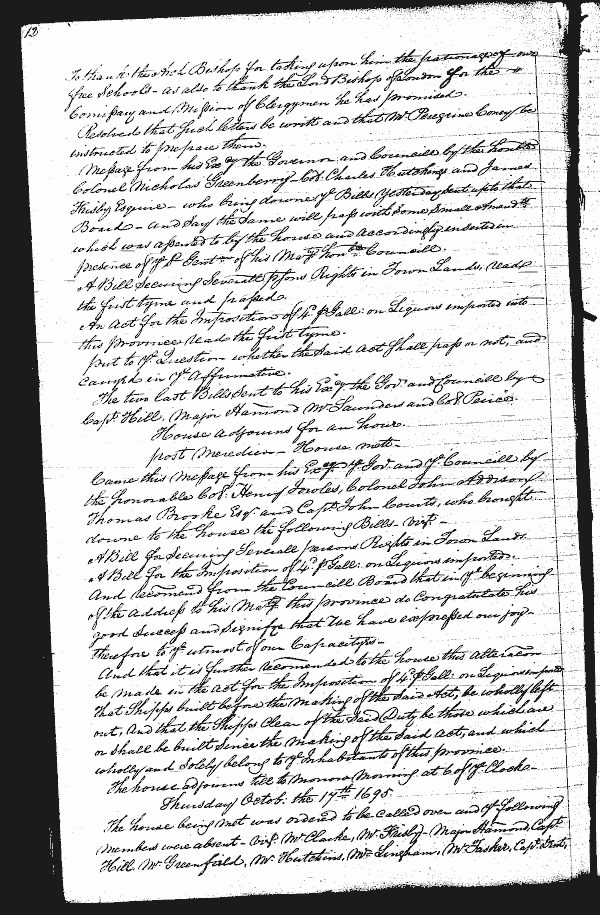 12
To thank the Arch Bishop for taking upon him the patronage of our
free Schools - as also to thank the Lord Bishop of London for the
Company and Mission of Clergymen he has promised.
Resolved that such letters be writt and that Mr. Peregrine Coney be
instructed to prepare them.
Message from his Excy the Governor and Councill by the honble
Colonel Nicholas Greenberry Col. Charles Hutchins and James
Frisby Esquire - who bring downe ye Bills Yesterday sent up to that
Board - and say the Same will pass with some Small Amendts
which was assented to by the house and accordingly inserted in
presence of ye sd. Gent of his Matys honble Councill.
A Bill Securing Severall psons Rights in Town Lands, read
the first tyme and passed.
An Act for the Imposition of 4d. p Gall: on Liquors imported into
this province read the first tyme.
put to ye Question whether the Said Act shall pass or not, and
carryed in ye Affirmative.
The two last Bills Sent to his Excy the Govr. and Councill by
Capt. Hill, Major Hamond Mr. Saunders and Col. Peirce.
House adjourns for an hour.
post Meredien - House mett.
Came this Message from his Excy. ye Govr. and ye Councill by
the honorable Col. Henry Jowles, Colonel John Addison
Thomas Brooke Esqr. and Capt. John Courts, who brought
downe to the house the following Bills - vizt. -
A Bill for Securing Severall persons Rights in Town Lands
A Bill for the Imposition of 4d. p Gall: on Liquors imported.
And recomend from the Councill Board that in ye beginning
of the Address to his Maty. this province do Congratulate his
good Success and Signifye that Wee have expressed our joy
therefore to ye utmost of our Capacitys. -
And that it is further recomended to the house this Alteracon
be made in the Act for the Imposition of 4d. p Gall: on Liquors imported
That Shipps built before the Making of the Said Act, be wholly left
out, And that the Shipps Clear of the Said Duty be those which are
or shall be built Since the Making of the Said Act, and which
wholly and Solely belong to ye Inhabitants of this province.
The house adjourns till to Morrow Morning at 6 of ye Clock -
Thursday Octob: the 17th 1695.
The house being met was ordered to be called over and ye following
members were absent - vizt. Mr. Clarke, Mr. Frisby - Major Hamond, Capt.
Hill, Mr. Greenfield, Mr. Hutchins, Mr. Lingham, Mr. Tasker, Capt.